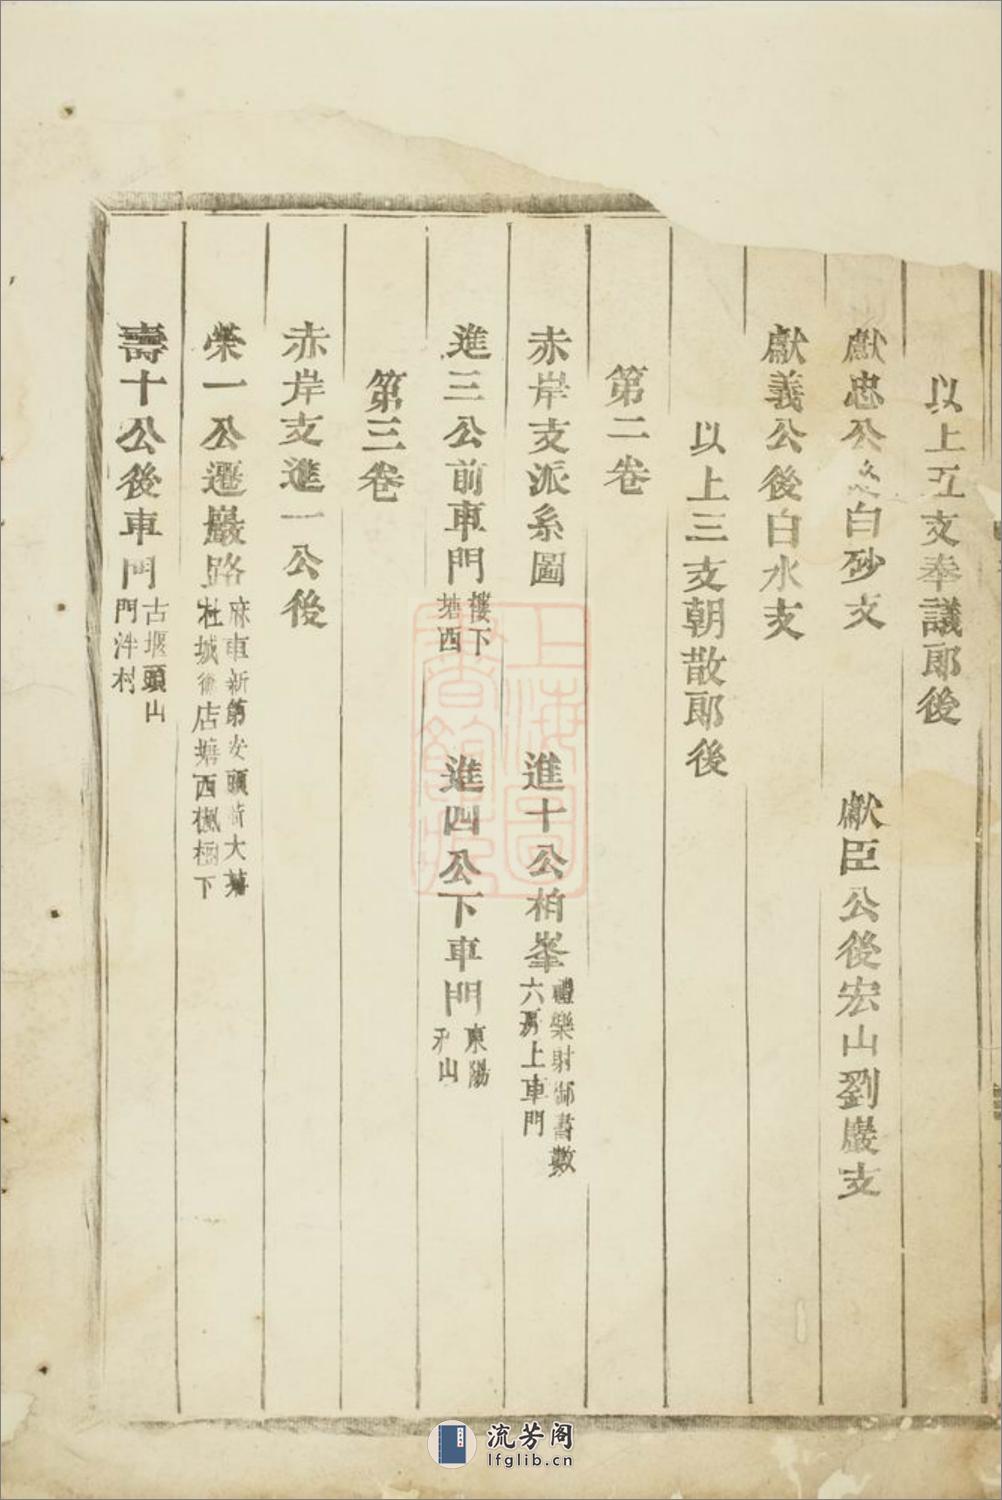 以上五支奉議郎後
獻忠公後白砂支　獻臣公後宏山劉巖支
獻義公後白水支
以上三支朝散郎後
第二卷
赤岸支派系圖　進十公柏峯 禮樂射御書數
六房上車門
進三公前車門 樓下
塘西
進四公下車門 東陽
禾山
第三卷
赤岸支進一公後
榮一公遷巖路 麻車新第安頭前大
杜城後店塘西楓樹下
壽十公後車門 古堰頭山
門泮村
上海圖書館藏
流芳阁
lfglib.cn